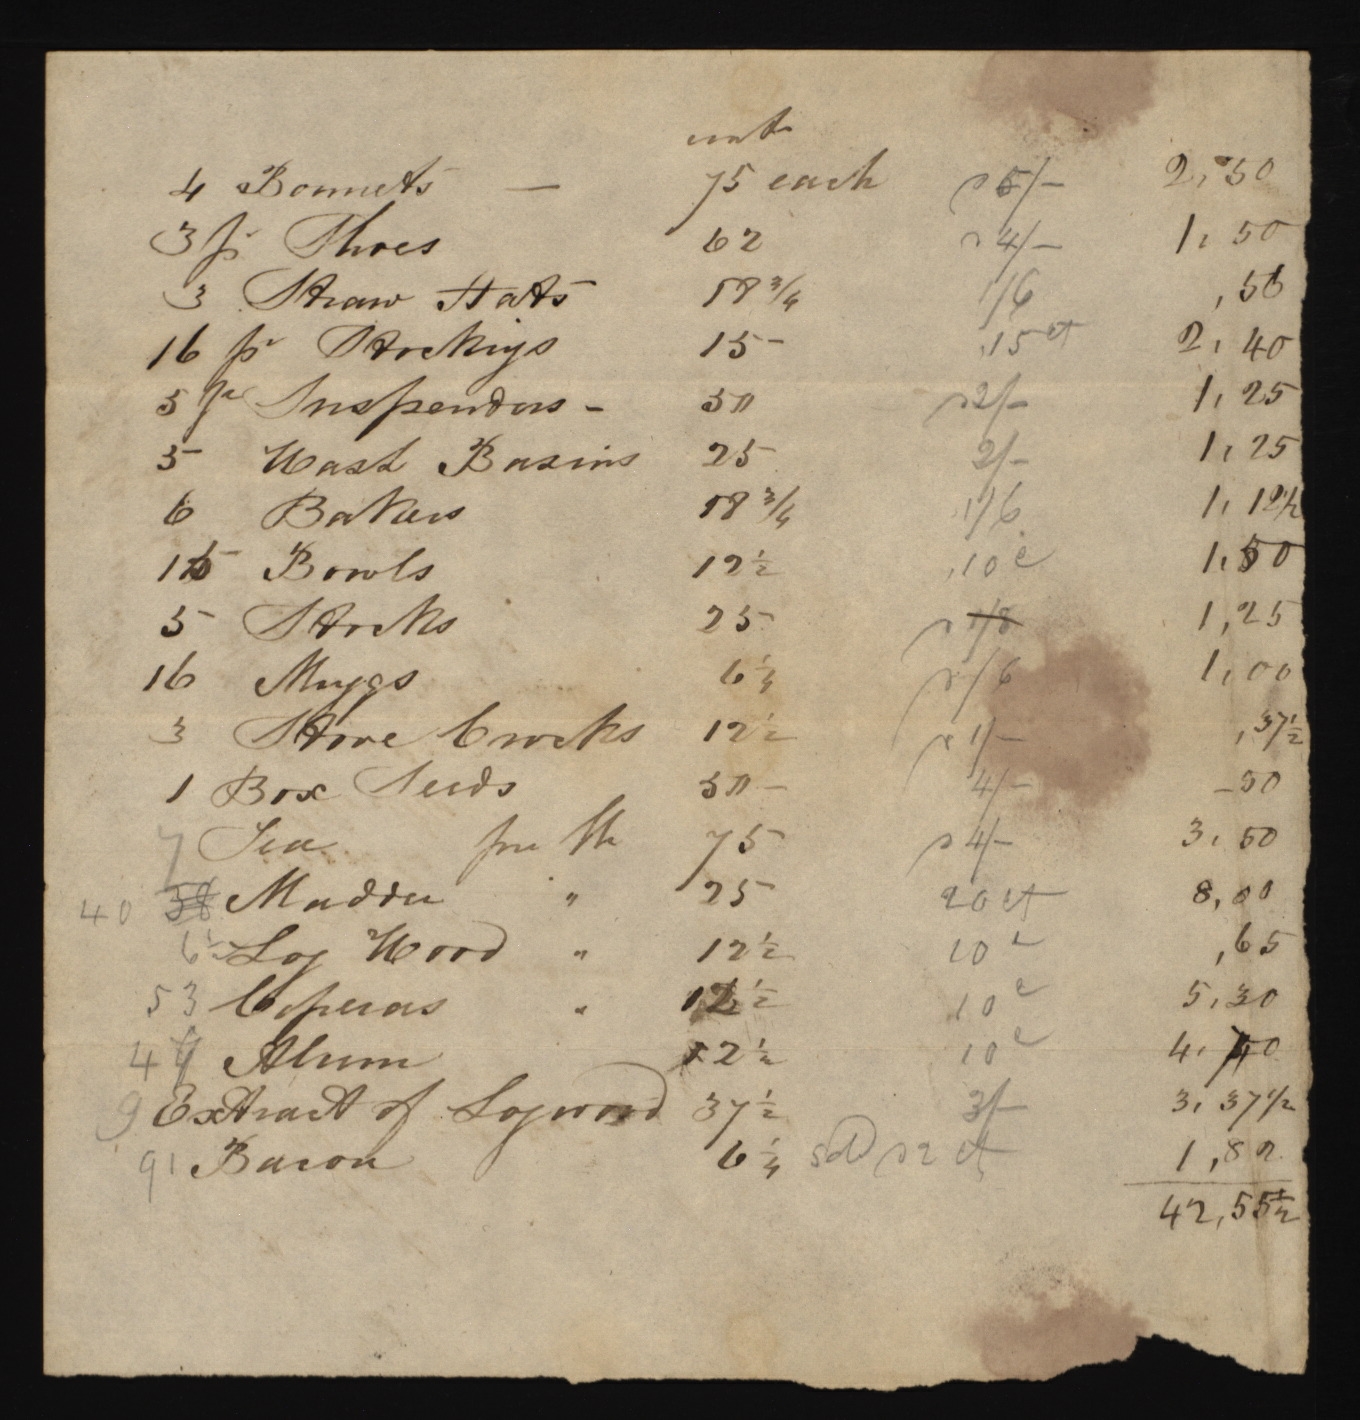 4 Bonnets — 75 each 5/- 2,50
3 pr Shoes 62 4/- 1,50
3 Straw Hats 18 3/4 1/6 ,56
16 pr Stockigs 15- ,15 ct 2,40
5 pr Suspenders - 50 2/- 1,25
5 Wash Basins 25 2/- 1,25
6 Bakers 18 3/4 1/6 1,12 1/2
15 Bowls 12 1/2 ,10 c 1,50
5 Stocks 25 1,25
16 Muggs 6 1/4 /6 1,00
3 Stone Crocks 12 1/2 1/- ,37 1/2
1 Box Seeds 50 - 4/- -50
7 Tea per lb 75 4/- 3,50
40 38 Madder " 25 20 ct 8,00
6 1/2 Log Wood " 12 1/2 10 c ,65
53 Coperas " 12 1/2 10 c 5,30
4 Alum 12 1/2 10 c 4,40
9 Extract of Logwood 37 1/2 3/- 3,37 1/2
91 Bacon 6 1/4 sold 2 ct 1,82
42,55 1/2